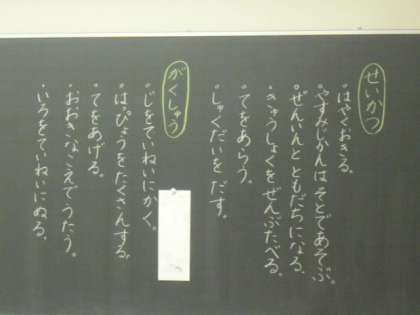 せいかつ
・はやくおきる。
・やすみじかんはそとであそぶ。
・ぜんいんとともだちになる。
・きゅうしょくをぜんぶたべる。
・てをあらう。
・しゅくだいをだす。
がくしゅう
・じをていねいにかく。
・はっぴょうをたくさんする。
・てをあげる。
・おおきなこえでうたう。
・いろをていねいにぬる。